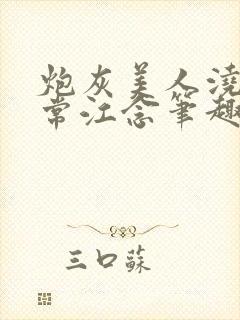 炮灰美人浇
常江念笔趣
三口蘇